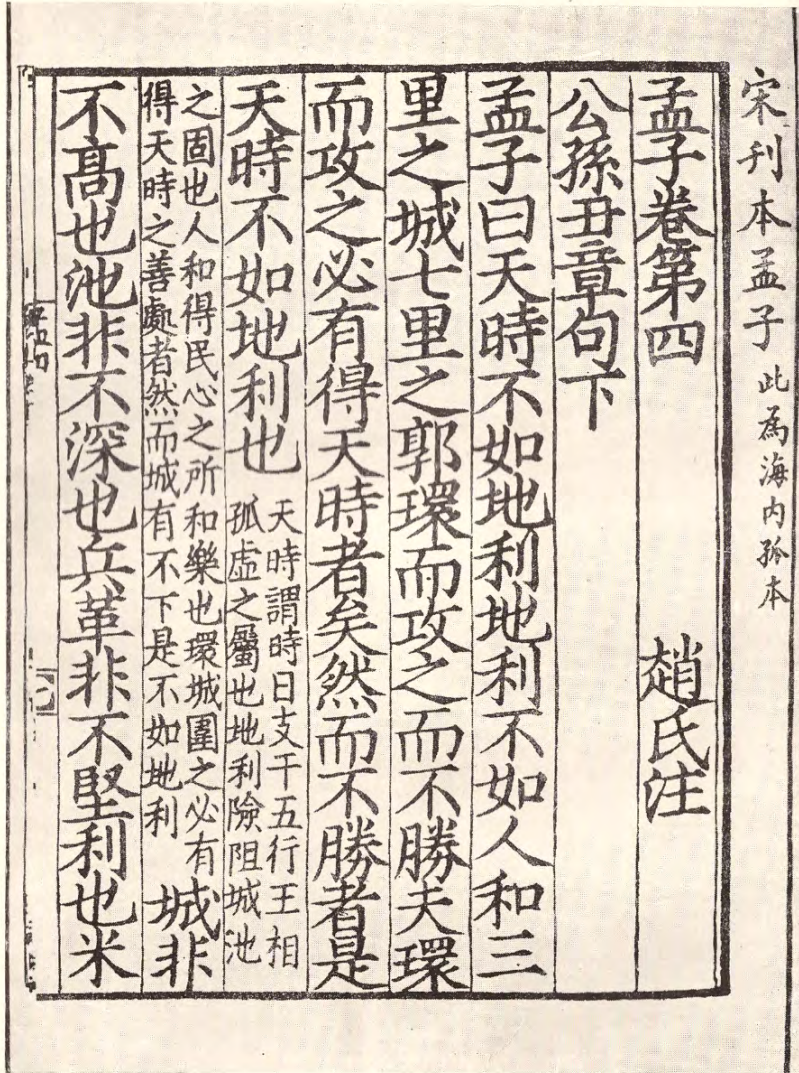 宋刊本孟子 此為海内孤本
孟子卷第四 趙氏注
公孫丑章句下
孟子曰天時不如地利地利不如人和三
里之城七里之郭環而攻之而不勝夫環
而攻之必有得天時者矣然而不勝者是
天時不如地利也 天時謂時日支干五行王相
孤虛之屬也地利險阻城池
之固也人和得民心之所和樂也環城圍之必有
得天時之善處者然而城有不下是不如地利 城非
不高也池非不深也兵革非不堅利也米